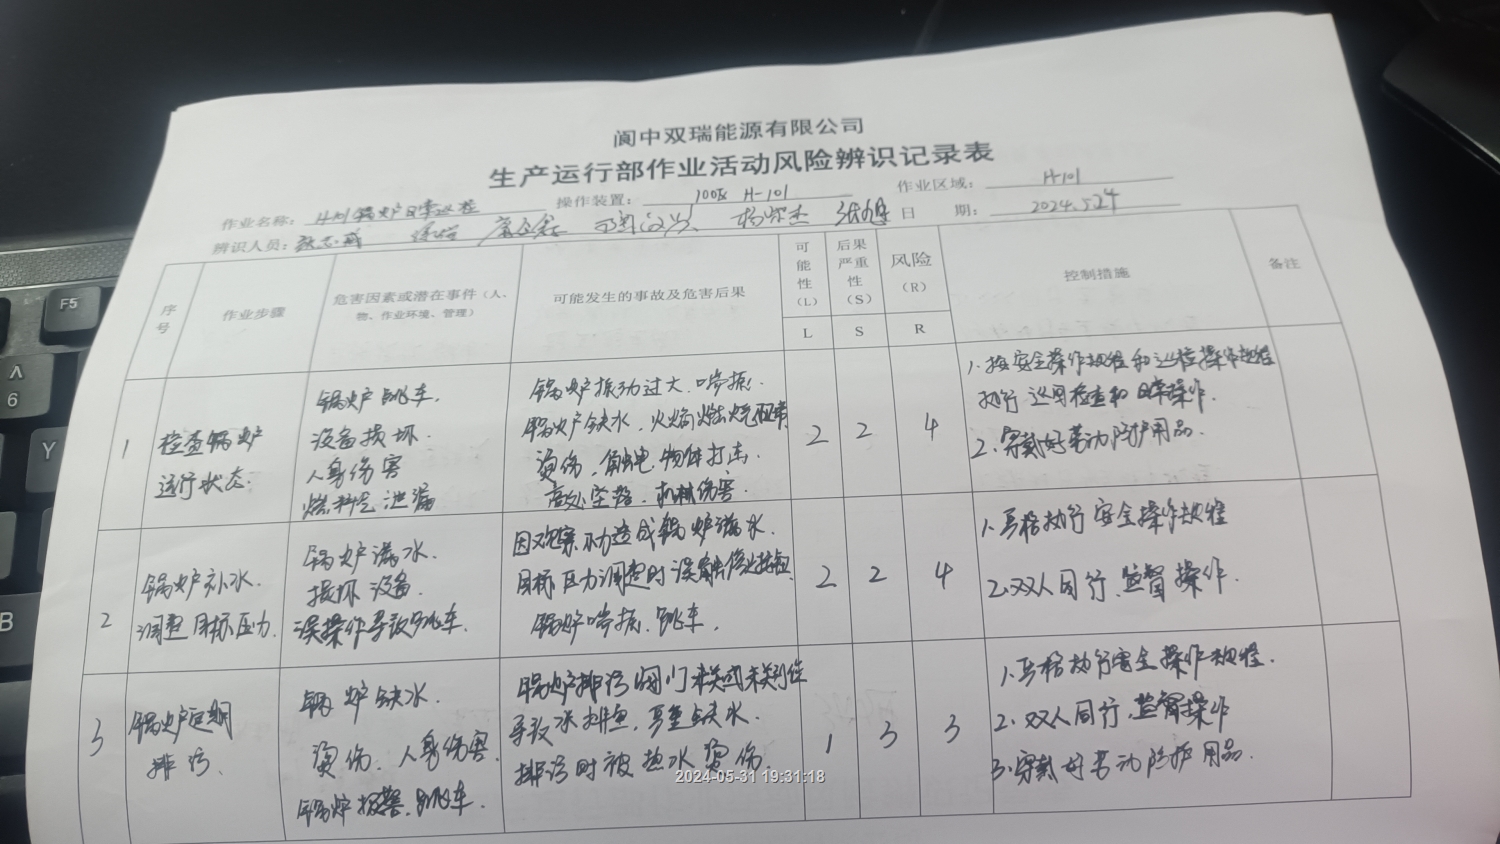 阆中双瑞能源有限公司
生产运行部作业活动风险辨识记录表
作业名称: 锅炉日常巡检 操作装置: 100区 H-101 作业区域: H-101
辨识人员: 日 期: 2024.5.24
序号 作业步骤 危害因素或潜在事件（人、物、作业环境、管理） 可能发生的事故及危害后果 可能性（L） 后果严重性（S） 风险（R） 控制措施 备注
L S R
1 检查锅炉
运行状态.
锅炉跳车.
设备损坏.
人身伤害
燃料气泄漏
锅炉振动过大.喘振.
锅炉缺水.火焰燃烧
烫伤.触电.物体打击.
高处坠落.机械伤害.
2 2 4
1.按安全操作规程和巡检操作规程
执行巡回检查和日常操作.
2.穿戴好劳动防护用品.
2 锅炉补水.
调整目标压力.
锅炉满水.
损坏设备.
误操作导致跳车.
因观察不力造成锅炉满水.
目标压力调整时误触停止按钮
锅炉喘振.跳车.
2 2 4
1.严格执行安全操作规程
2.双人同行.监督操作.
3 锅炉定期
排污、
锅炉缺水.
烫伤.人身伤害.
锅炉报警.跳车.
锅炉排污阀门未关或未关到位
导致水排.严重缺水.
排污时被热水烫伤.
1 3 3
1.严格执行安全操作规程.
2.双人同行.监督操作
3.穿戴好劳动防护用品.
2024-05-31 19:31:18
F5
6
Y
B